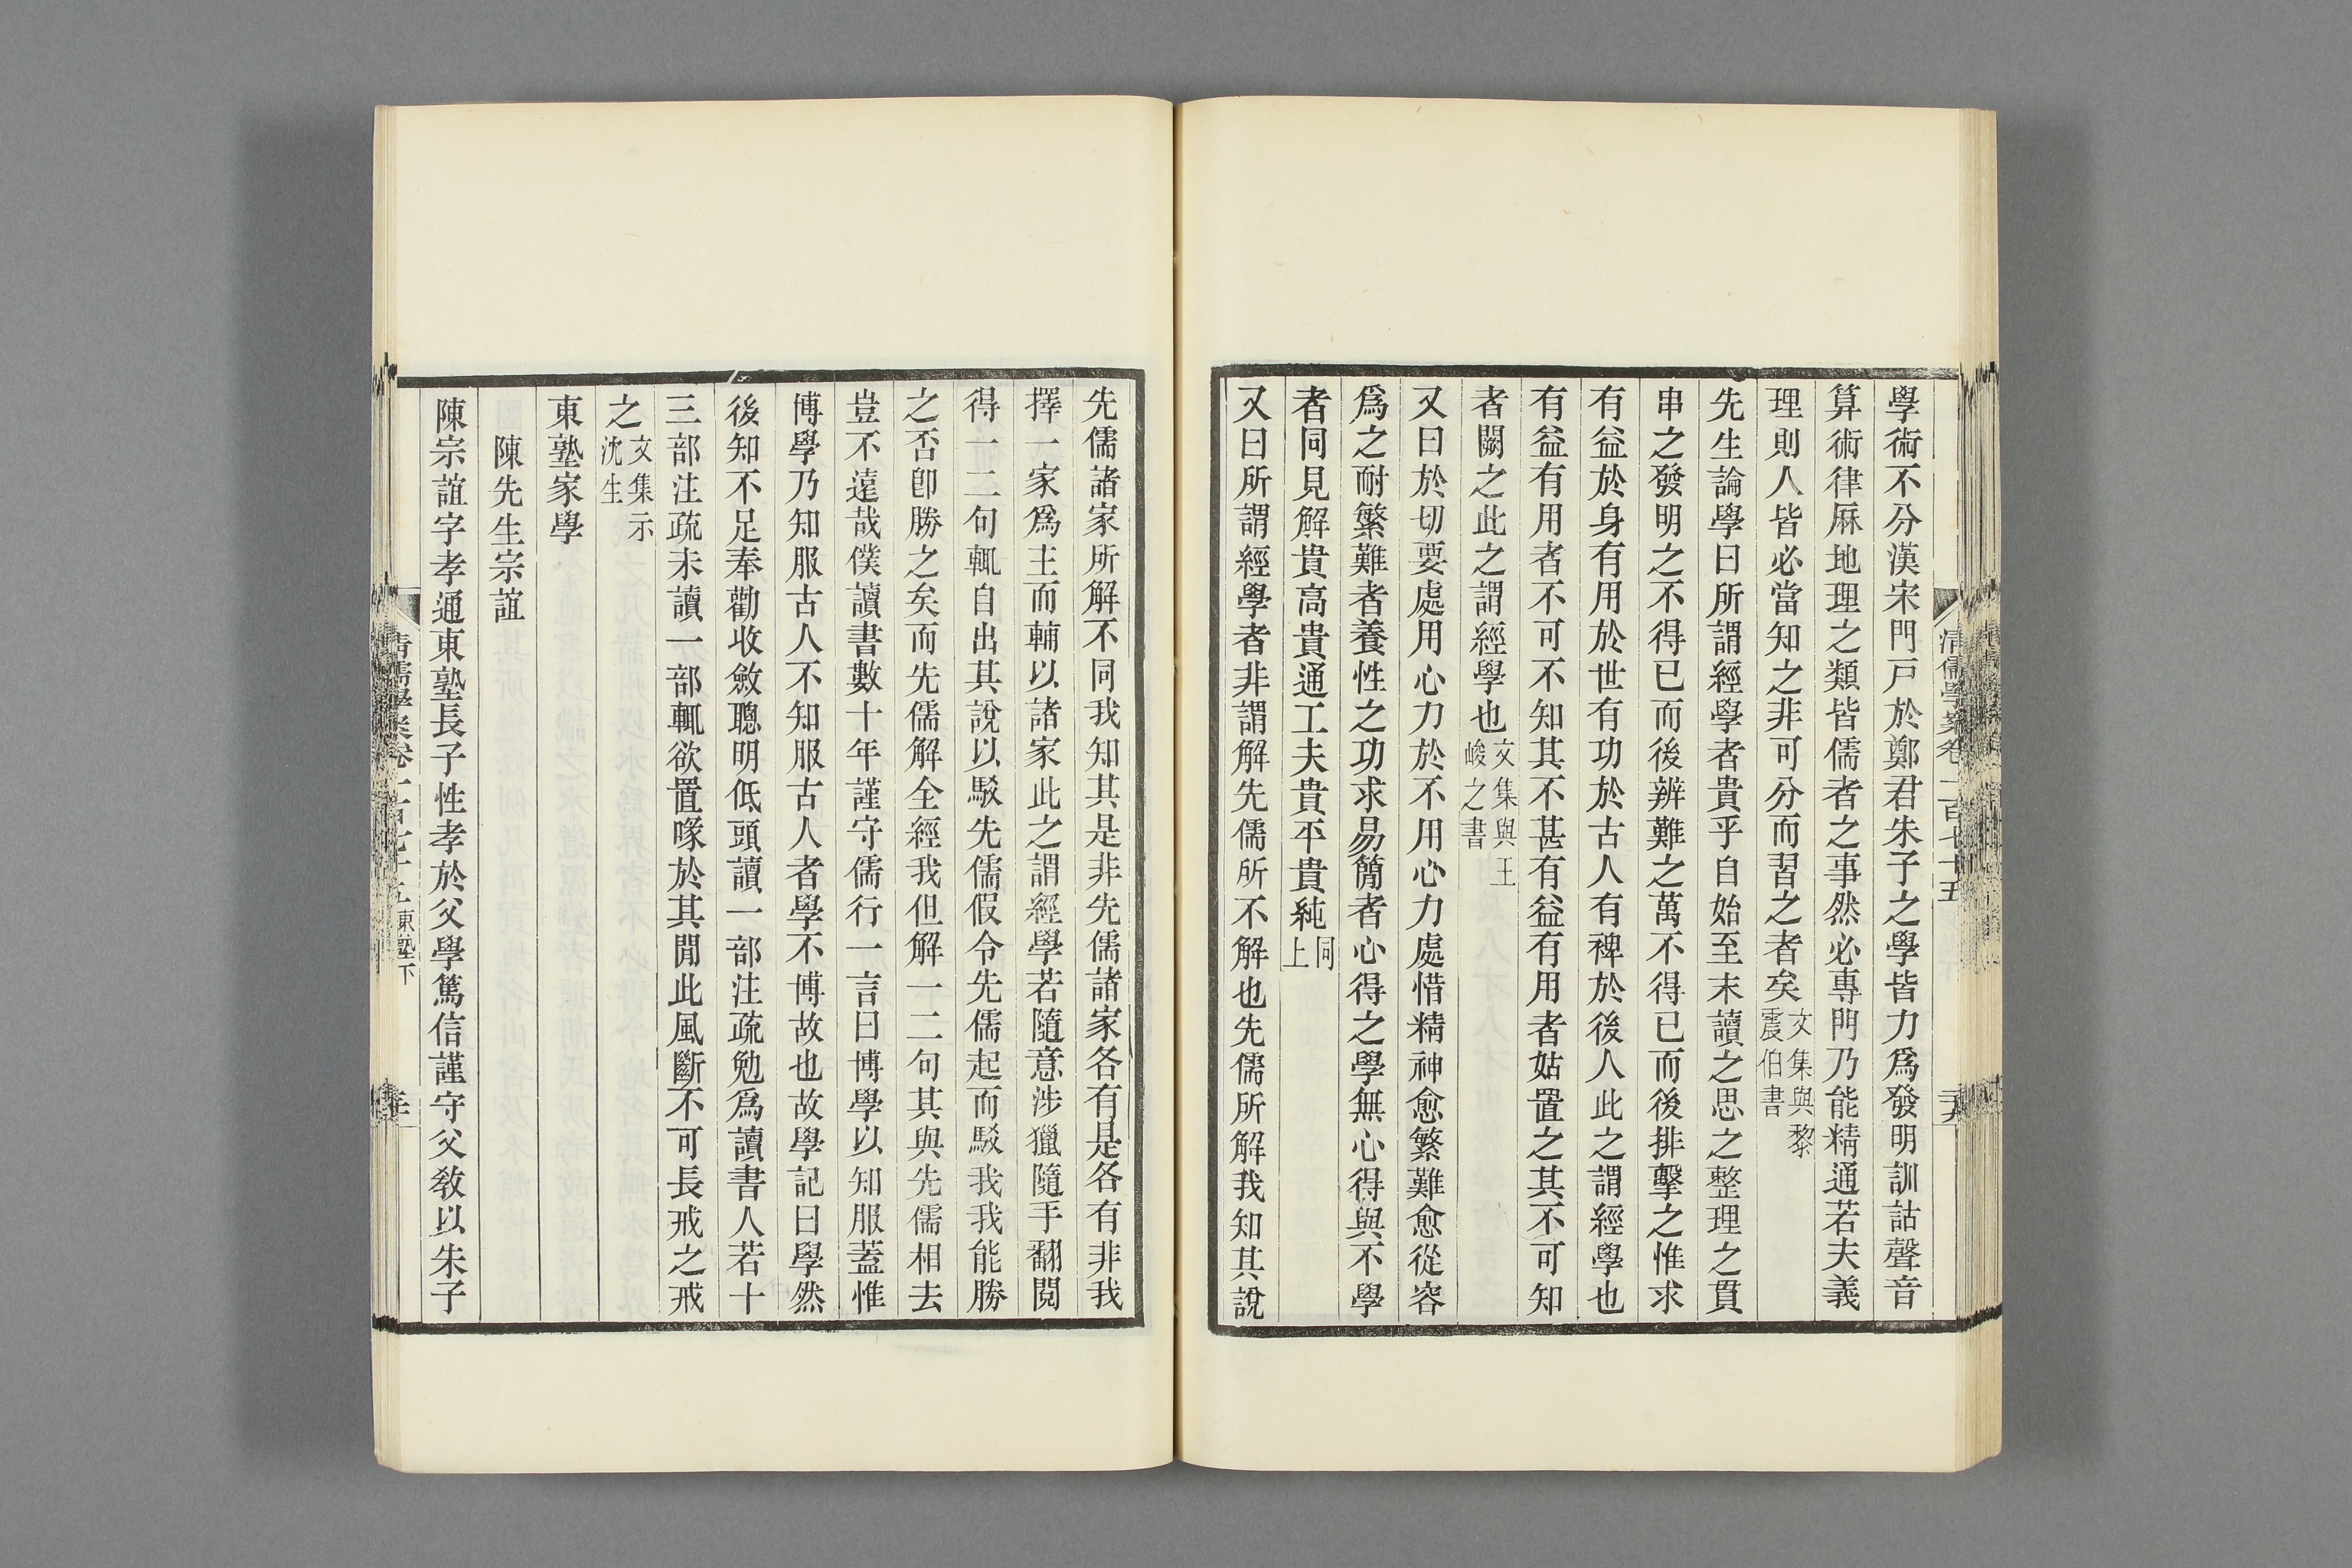 學術不分漢宋門戸於鄭君朱子之學皆力爲發明訓詁聲音
算術律厤地理之類皆儒者之事然必專門乃能精通若夫義
理則人皆必當知之非可分而習之者矣文集與黎震伯書
先生論學曰所謂經學者貴乎自始至末讀之思之整理之貫
串之發明之不得已而後辨難之萬不得已而後排擊之惟求
有益於身有用於世有功於古人有裨於後人此之謂經學也
有益有用者不可不知其不甚有益有用者姑置之其不可知
者闕之此之謂經學也文集與王峻之書
又曰於切要處用心力於不用心力處惜精神愈繁難愈從容
爲之耐繁難者養性之功求易簡者心得之學無心得與不學
者同見解貴高貴通工夫貴平貴純同上
又曰所謂經學者非謂解先儒所不解也先儒所解我知其說
清儒學案卷一百七十五
先儒諸家所解不同我知其是非先儒諸家各有是各有非我
擇一家爲主而輔以諸家此之謂經學若隨意涉獵隨手翻閱
得一二句輒自出其說以駁先儒假令先儒起而駁我我能勝
之否卽勝之矣而先儒解全經我但解一二句其與先儒相去
豈不遠哉僕讀書數十年謹守儒行一言曰博學以知服蓋惟
博學乃知服古人不知服古人者學不博故也故學記曰學然
後知不足奉勸收斂聰明低頭讀一部注疏勉爲讀書人若十
三部注疏未讀一部輒欲置喙於其閒此風斷不可長戒之戒
之文集示沈生
東塾家學
陳先生宗誼
陳宗誼字孝通東塾長子性孝於父學篤信謹守父敎以朱子
清儒學案卷一百七十五 東塾下